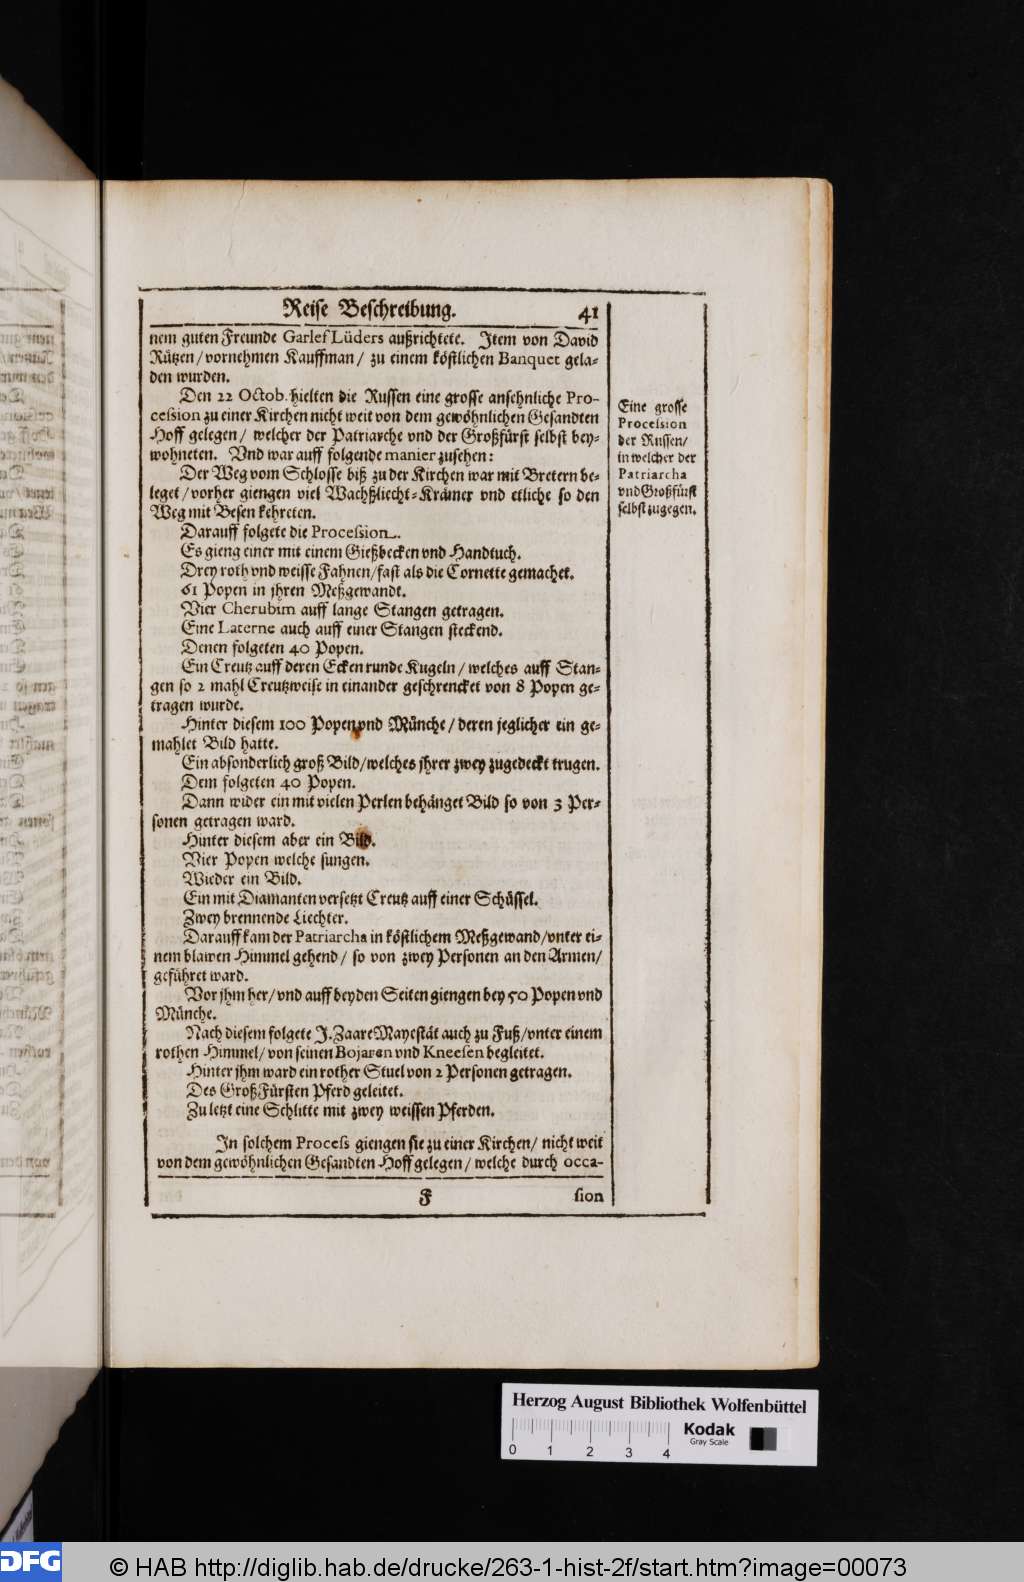 Reise Beschreibung. 41
nem guten Freunde Garlef Lüders außrichtete. Item von David
Rützen/vornehmen Kauffman/ zu einem köstlichen Banquet gela-
den wurden.
Den 22 Octob. hielten die Russen eine grosse ansehnliche Pro-
cession zu einer Kirchen nicht weit von dem gewöhnlichen Gesandten
Hoff gelegen/ welcher der Patriarche vnd der Großfürst selbst bey-
wohneten. Vnd war auff folgende manier zusehen:
Der Weg vom Schlosse biß zu der Kirchen war mit Bretern be-
leget/vorher giengen viel Wachßliecht-Krämer vnd etliche so den
Weg mit Besen kehreten.
Darauff folgete die Procession.
Es gieng einer mit einem Gießbecken vnd Handtuch.
Drey roth vnd weisse Fahnen/fast als die Cornette gemachet.
61 Popen in jhren Meßgewandt.
Vier Cherubim auff lange Stangen getragen.
Eine Laterne auch auff einer Stangen steckend.
Denen folgeten 40 Popen.
Ein Creutz auff deren Ecken runde Kugeln/welches auff Stan-
gen so 2 mahl Creutzweise in einander geschrencket von 8 Popen ge-
tragen wurde.
Hinter diesem 100 Popen vnd Münche/deren jeglicher ein ge-
mahlet Bild hatte.
Ein absonderlich groß Bild/welches jhrer zwey zugedeckt trugen.
Dem folgeten 40 Popen.
Dann wider ein mit vielen Perlen behänget Bild so von 3 Per-
sonen getragen ward.
Hinter diesem aber ein Bild.
Vier Popen welche sungen.
Wieder ein Bild.
Ein mit Diamanten versetzt Creutz auff einer Schüssel.
Zwey brennende Liechter.
Darauff kam der Patriarcha in köstlichem Meßgewand/vnter ei-
nem blawen Himmel gehend/ so von zwey Personen an den Armen/
geführet ward.
Vor jhm her/vnd auff beyden Seiten giengen bey 50 Popen vnd
Münche.
Nach diesem folgete J. Zaare Mayestät auch zu Fuß/vnter einem
rothen Himmel/ von seinen Bojaren vnd Kneesen begleitet.
Hinter jhm ward ein rother Stuel von 2 Personen getragen.
Des GroßFürsten Pferd geleitet.
Zu letzt eine Schlitte mit zwey weissen Pferden.
In solchem Process giengen sie zu einer Kirchen/ nicht weit
von dem gewöhnlichen Gesandten Hoff gelegen/ welche durch occa-
F sion
Eine grosse
Procession
der Russen/
in welcher der
Patriarcha
vnd Großfürst
selbst zugegen.
Herzog August Bibliothek Wolfenbüttel
0 1 2 3 4
Kodak
Gray Scale
DFG
© HAB http://diglib.hab.de/drucke/263-1-hist-2f/start.htm?image=00073